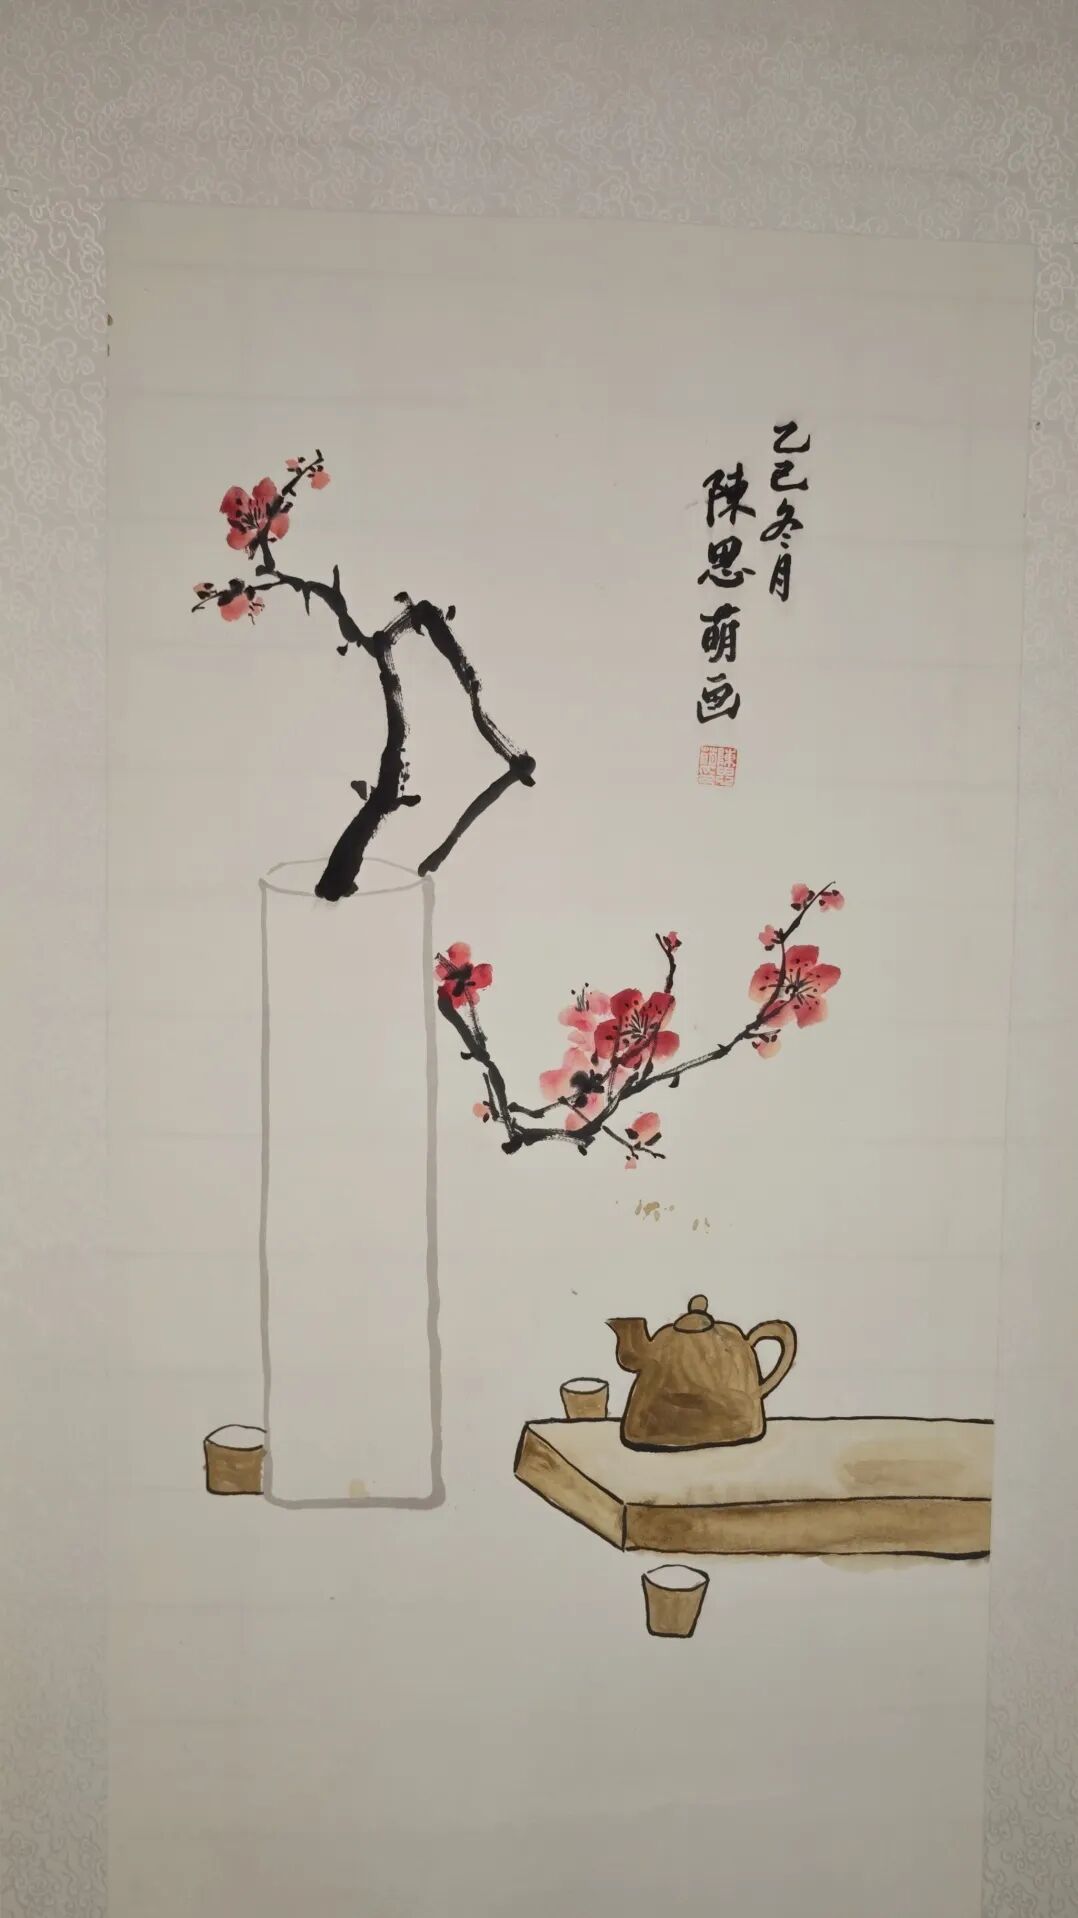 乙巳冬月
陳思萌画